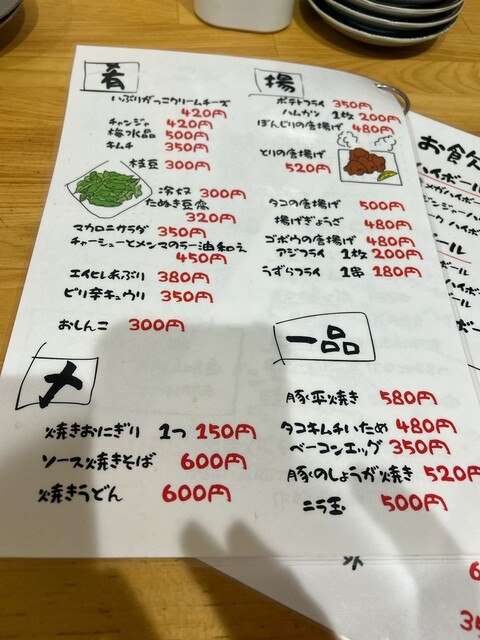 肴
いぶりがっこクリームチーズ
420円
チャンジャ 420円
梅水晶 500円
キムチ 350円
枝豆 300円
冷奴 300円
たぬき豆腐
320円
マカロニサラダ 350円
チャーシューとメンマのラー油和え
450円
エイヒレあぶり 380円
ピリ辛キュウリ 350円
おしんこ 300円
〆
焼きおにぎり 1つ 150円
ソース焼きそば 600円
焼きうどん 600円
揚
ポテトフライ 350円
ハムカツ 1枚 200円
ぼんじりの唐揚げ 480円
とりの唐揚げ
520円
タコの唐揚げ 500円
揚げぎょうざ 480円
ゴボウの唐揚げ 480円
アジフライ 1枚 200円
うずらフライ 1串 180円
一品
豚平焼き 580円
タコキムチいため 480円
ベーコンエッグ 350円
豚のしょうが焼き 520円
ニラ玉 500円
お飲
ハイボール
メガハイボ
ジンジャーハイ
ハイボ